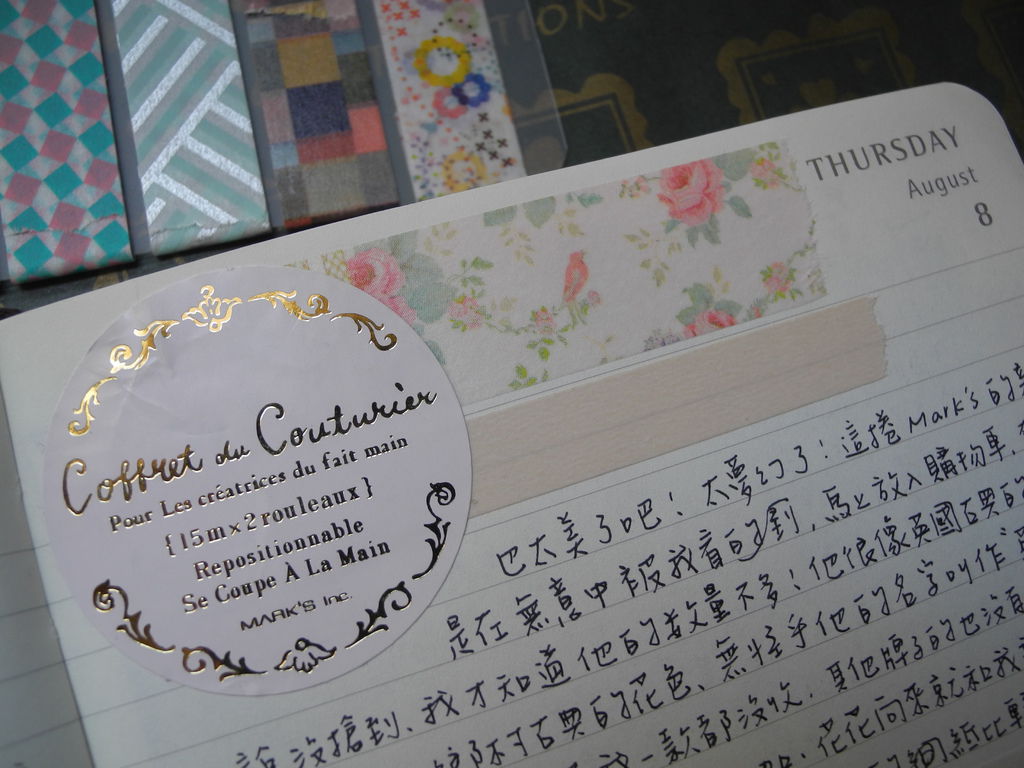 TIONS
THURSDAY
August
8
Coffret du Couturièr
Pour Les créatrices du fait main
{15m×2rouleaux}
Repositionnable
Se Coupe À La Main
MARK'S Inc.
也太美了吧！太夢幻了！這捲Mark's的
是在無意中被我看的到，馬上放入購物車，
沒搶到、我才知道他的數量不多！他很像英國古典的
古典的花色、無怪乎他的名字叫作
一款都沒收，其他牌子的也沒
花花向來就和我
的細紙比